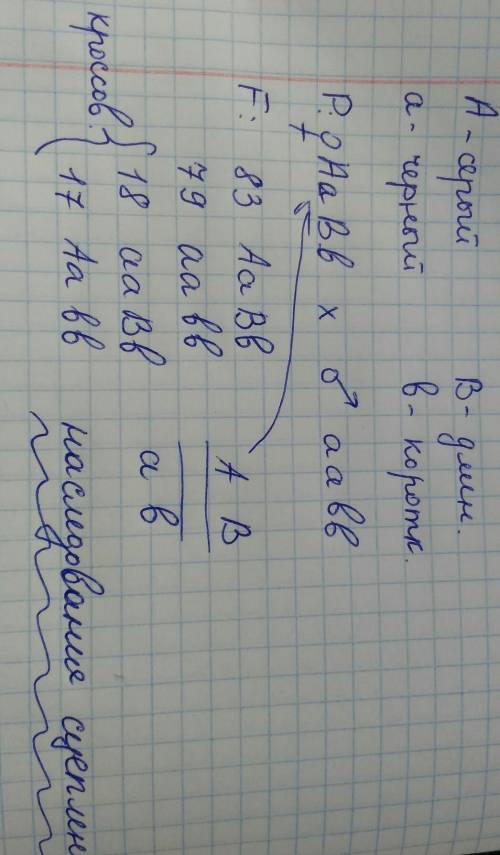 А - серый В - длин.
а - черный в - коротк.
Р: ♀ АаВв х ♂ аавв
F: 83 АаВв
79 аавв
18 ааВв
17 Аавв
кроссов. {
А В
а в
наследования сцеплен